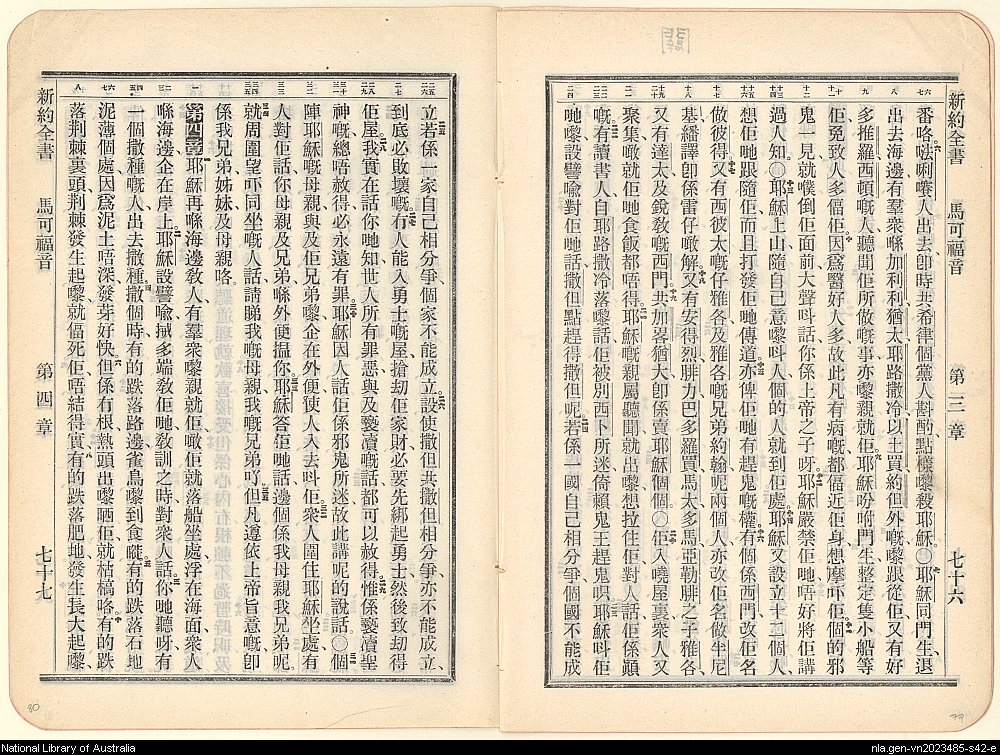 新約全書 馬可福音 第三章 七十六
番咯㗎唎嚽人出去、卽時共希律個黨人斟酌點樣嚟殺耶穌〇耶穌同門生、退
出去海邊、有羣衆喺加利利、猶太、耶路撒冷、以土買、約但外嘅嚟跟從佢、又有好
多推羅西頓嘅人、聽聞佢所做嘅事、亦嚟親就佢、耶穌吩咐門生、整定隻小船等
佢、免致人多偪佢、因爲醫好人多、故此凡有病嘅、都偪近佢身、想摩吓佢、個的邪
鬼一見、就僕倒佢面前、大聲呌話、你係上帝之子呀、耶穌嚴禁佢哋、唔好將佢講
過人知〇耶穌上山、隨自己意嚟呌人、個的人就到佢處、耶穌又設立十二個人、
想佢哋跟隨佢、而且打發佢哋傳道、亦俾佢哋有趕鬼嘅權、有個係西門、改佢名
做彼得、又有西彼太嘅仔雅各、及雅各嘅兄弟約翰呢、兩個人、亦改佢名做半尼
基、繙譯卽係雷仔噉解、又有安得烈、腓力、巴多羅買、馬太、多馬、亞勒腓之子雅各、
又有達太、及銳敎嘅西門、共加畧猶大、卽係賣耶穌個個〇佢入嘵屋裏、衆人又
聚集、噉就佢哋食飯都唔得、耶穌嘅親屬聽聞、就出嚟想拉住佢、對人話佢係顚
嘅、有讀書人、自耶路撒冷落嚟、話佢被別西卜所迷、倚賴鬼王趕鬼呮、耶穌呌佢
哋嚟、設譬喩對佢哋話、撒但點趕得撒但呢、若係一國自己相分爭、個國不能成
新約全書 馬可福音 第四章 七十七
立、若係一家自己相分爭、個家不能成立、設使撒但共撒但相分爭、亦不能成立、
到底必敗壞嘅、有人能入勇士嘅屋、搶刧佢家財、必要先綁起勇士、然後致刧得
佢屋、我實在話你哋知、世人所有罪惡、與及褻瀆嘅話、都可以赦得、惟係褻瀆聖
神嘅、總唔赦得、必永遠有罪、耶穌因人話佢係邪鬼所迷、故此講呢的說話、〇個
陣耶穌嘅母親、與及佢兄弟嚟、企在外便、使人入去呌佢、衆人圍住耶穌坐處、有
人對佢話、你母親及兄弟、喺外便搵你、耶穌答佢哋話、邊個係我母親我兄弟呢、
就周圍望吓同坐嘅人話、請睇我嘅母親我嘅兄弟吖、但凡遵依上帝旨意嘅、卽
係我兄弟姊妹及母親咯、
第四章 耶穌再喺海邊敎人、有羣衆嚟親就佢、噉佢就落船坐處、浮在海面、衆人
喺海邊企在岸上、耶穌設譬喩、搣多端敎佢哋、敎訓之時、對衆人話、你哋聽呀、有
一個撒種嘅人、出去撒種、撒個時、有的跌落路邊、雀鳥嚟到食嘥、有的跌落石地
泥薄個處、因爲泥土唔深、發芽好快、但係冇根、熱頭出嚟晒佢、就枯槁咯、有的跌
落荆棘裏頭、荆棘發生起嚟、就偪死佢、唔結得實、有的跌落肥地、發生長大起嚟、
79
80
National Library of Australia
nla.gen-vn2023485-s42-e